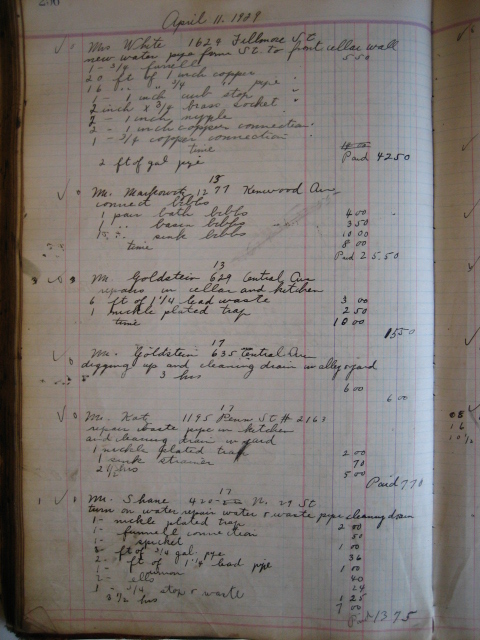 April 11. 1929
Mrs White 1624 Fillmore St
new water pipe from St. to front cellar wall
550
1 - 3/4 ferrell
20 ft of 1 inch copper
16 " " 3/4 " pipe
1 - 1 inch curb stop
2 inch x 3/4 brass socket
2 - 1 inch nipple
2 - 1 inch copper connection
1 - 3/4 copper connection
time
2 ft of gal pipe Paid 42 50
13
Mr. Markowitz 1277 Kenwood Ave
connect bibbs
1 pair bath bibbs 4 00
1 " basin bibbs 3 50
sink bibbs 10 00
time 8 00
Paid 25.50
13
Mr Goldstein 629 Central Ave
repairs in cellar and kitchen
6 ft of 1 1/4 lead waste 3 00
1 nickle plated trap 2 50
time 10 00
15 50
17
Mr. Goldstein 635 Central Ave
digging up and cleaning drain in alley & yard
3 hrs 6 00
6 00
17
Mr. Katz 1195 Penn St # 2163
repair waste pipe in kitchen
and cleaning drain in yard
1 nickle plated trap 2 00
1 sink strainer 70
2 1/2 hrs 5 00
Paid 7 70
17
Mr. Shane 420 N. 29 St
turn on water repair water & waste pipe cleaning drain
1 - nickle plated trap 2 00
1 - funnell connection 50
1 - spicket 1 00
3 - ft of 3/4 gal. pipe 36
2 - ft of 1 1/4 lead pipe 1 00
union 40
2 - ells 24
1 - 3/4 stop & waste 1 25
3 1/2 hrs 7 00
Paid 13 75